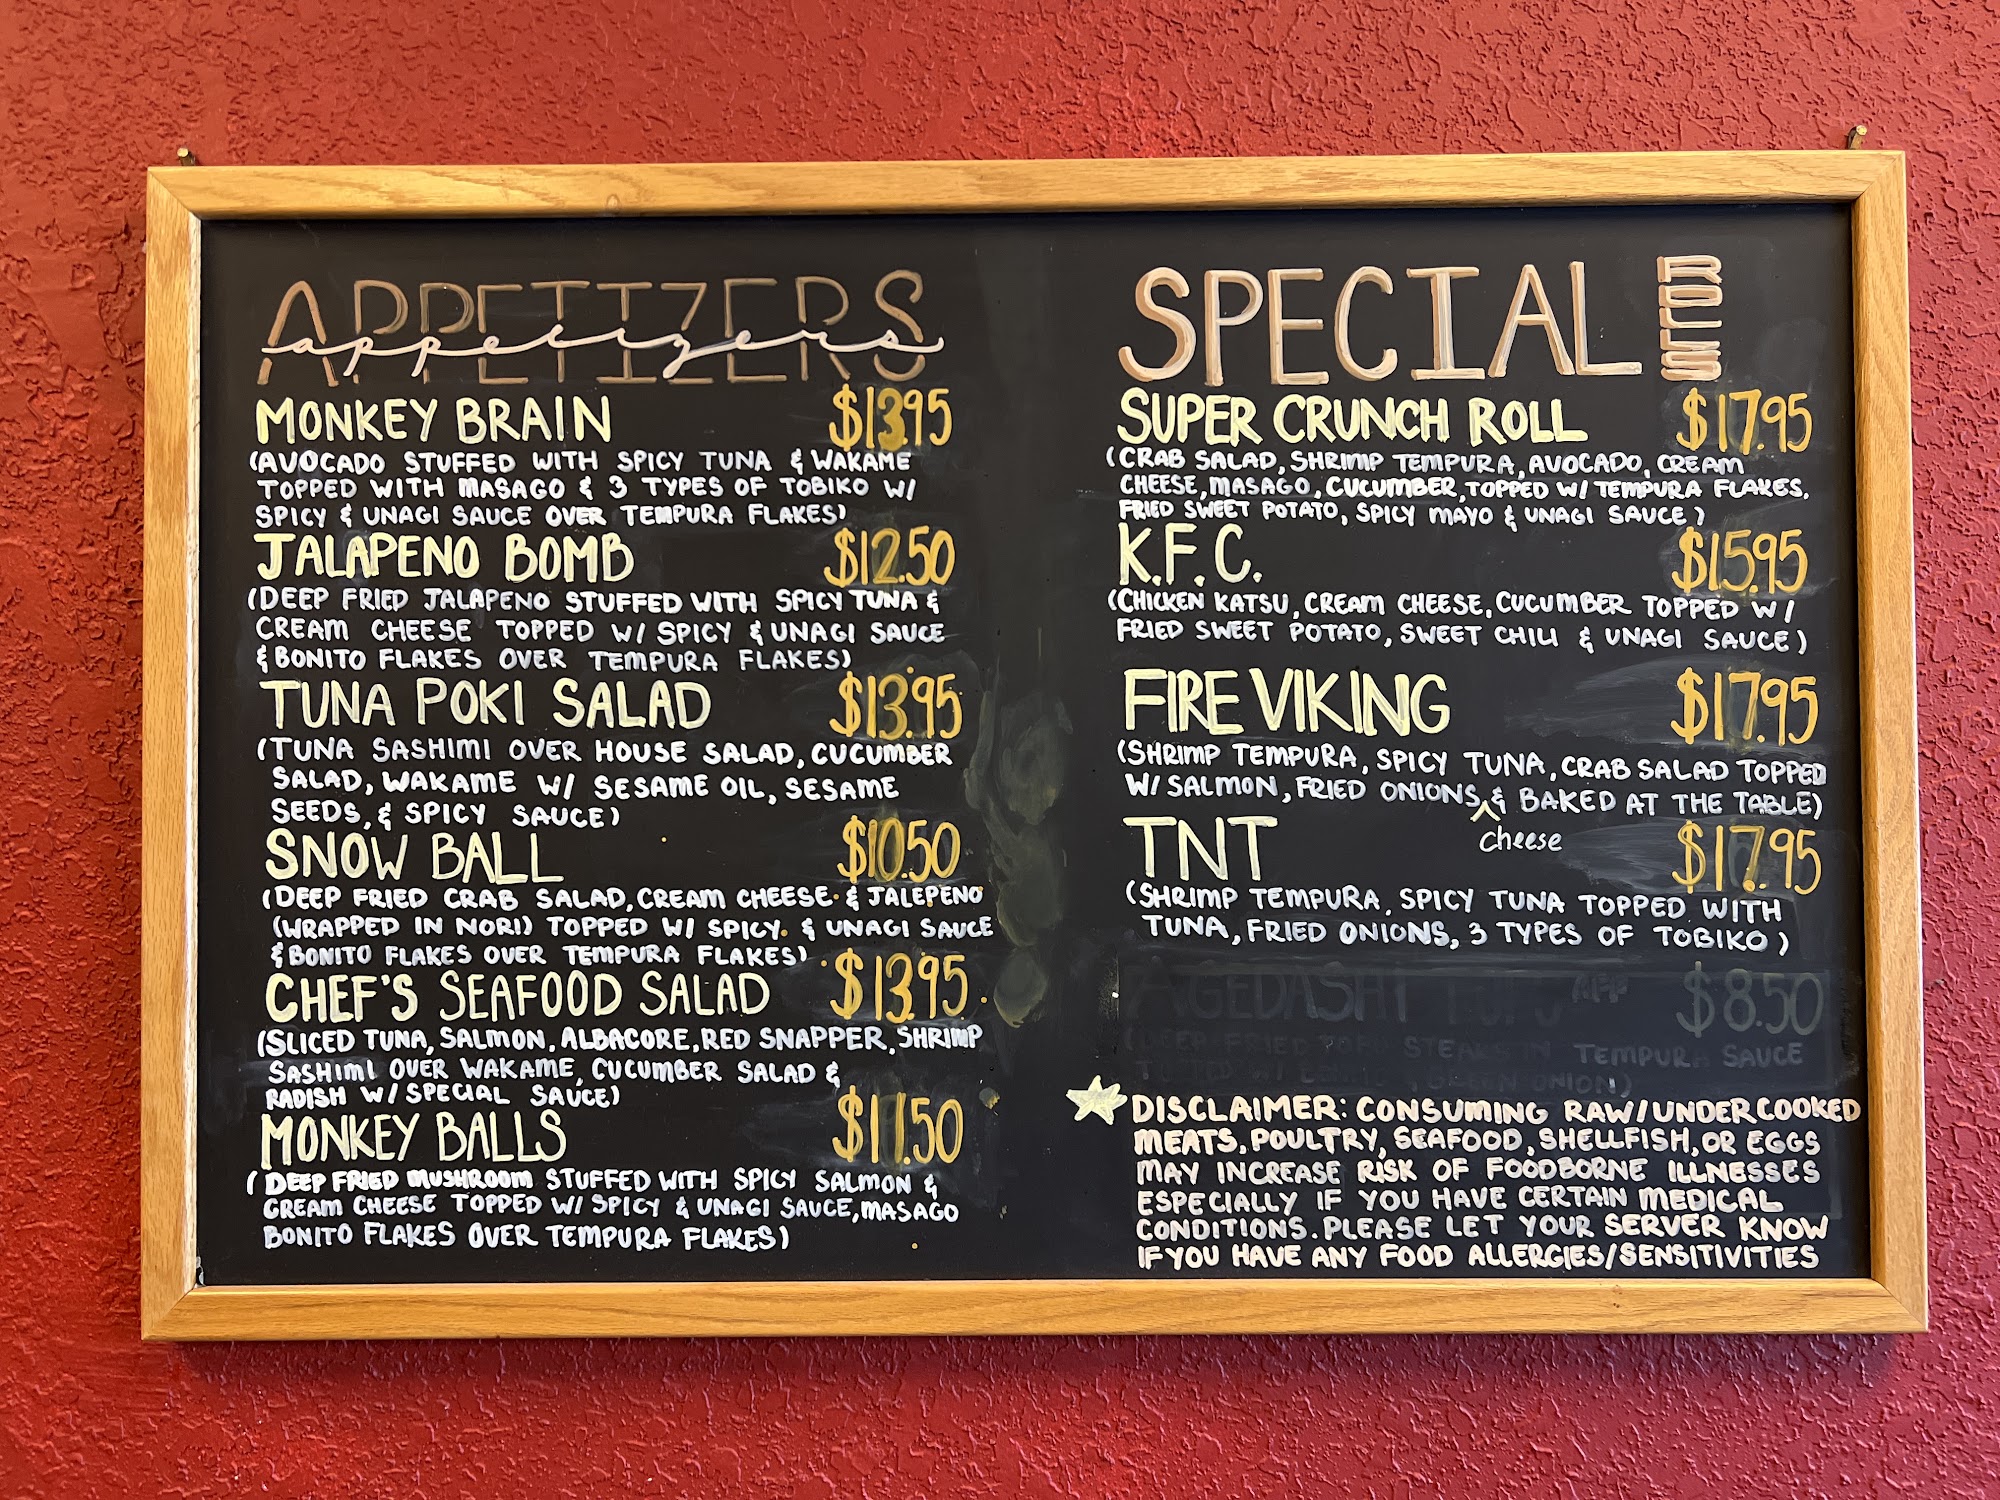 APPETIZERS
appetizers
MONKEY BRAIN $13.95
(AVOCADO STUFFED WITH SPICY TUNA & WAKAME
TOPPED WITH MASAGO & 3 TYPES OF TOBIKO W/
SPICY & UNAGI SAUCE OVER TEMPURA FLAKES)
JALAPENO BOMB $12.50
(DEEP FRIED JALAPENO STUFFED WITH SPICY TUNA &
CREAM CHEESE TOPPED W/ SPICY & UNAGI SAUCE
& BONITO FLAKES OVER TEMPURA FLAKES)
TUNA POKI SALAD $13.95
(TUNA SASHIMI OVER HOUSE SALAD, CUCUMBER
SALAD, WAKAME W/ SESAME OIL, SESAME
SEEDS, & SPICY SAUCE)
SNOW BALL $10.50
(DEEP FRIED CRAB SALAD, CREAM CHEESE & JALEPENO
(WRAPPED IN NORI) TOPPED W/ SPICY & UNAGI SAUCE
& BONITO FLAKES OVER TEMPURA FLAKES)
CHEF'S SEAFOOD SALAD $13.95
(SLICED TUNA, SALMON, ALBACORE, RED SNAPPER, SHRIMP
SASHIMI OVER WAKAME, CUCUMBER SALAD &
RADISH W/ SPECIAL SAUCE)
MONKEY BALLS $11.50
(DEEP FRIED MUSHROOM STUFFED WITH SPICY SALMON &
CREAM CHEESE TOPPED W/ SPICY & UNAGI SAUCE, MASAGO
BONITO FLAKES OVER TEMPURA FLAKES)
SPECIAL ROLLS
SUPER CRUNCH ROLL $17.95
(CRAB SALAD, SHRIMP TEMPURA, AVOCADO, CREAM
CHEESE, MASAGO, CUCUMBER, TOPPED W/ TEMPURA FLAKES,
FRIED SWEET POTATO, SPICY MAYO & UNAGI SAUCE)
K.F.C. $15.95
(CHICKEN KATSU, CREAM CHEESE, CUCUMBER TOPPED W/
FRIED SWEET POTATO, SWEET CHILI & UNAGI SAUCE)
FIRE VIKING $17.95
(SHRIMP TEMPURA, SPICY TUNA, CRAB SALAD TOPPED
W/ SALMON, FRIED ONIONS, & BAKED AT THE TABLE)
cheese
TNT $17.95
(SHRIMP TEMPURA, SPICY TUNA TOPPED WITH
TUNA, FRIED ONIONS, 3 TYPES OF TOBIKO)
AGEDASHI APP $8.50
(DEEP FRIED IN TEMPURA SAUCE
GREEN ONION)
DISCLAIMER: CONSUMING RAW/UNDERCOOKED
MEATS, POULTRY, SEAFOOD, SHELLFISH, OR EGGS
MAY INCREASE RISK OF FOODBORNE ILLNESSES
ESPECIALLY IF YOU HAVE CERTAIN MEDICAL
CONDITIONS. PLEASE LET YOUR SERVER KNOW
IF YOU HAVE ANY FOOD ALLERGIES/SENSITIVITIES